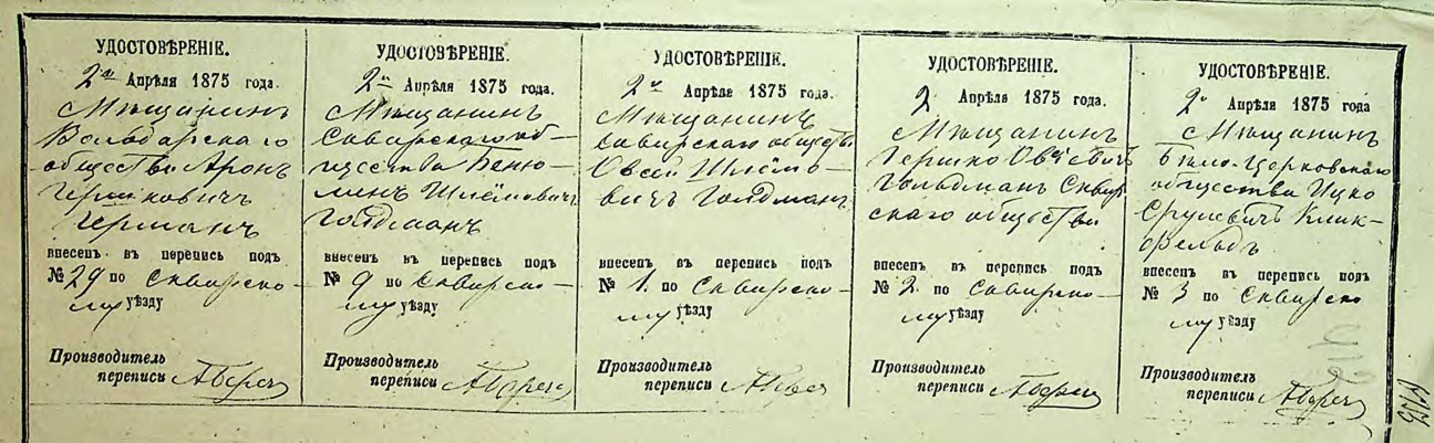 УДОСТОВѢРЕНІЕ.
2го Апрѣля 1875 года.
Мѣщанинъ
Володарскаго
общества Аронъ
Гершковичъ
Германъ
внесенъ въ перепись подъ
№ 29 по Сквирско-
му уѣзду
Производитель
переписи
УДОСТОВѢРЕНІЕ.
2го Апрѣля 1875 года.
Мѣщанинъ
Сквирскаго об-
щества Беню-
минъ Шлёмовичъ
Голдманъ
внесенъ въ перепись подъ
№ 9 по Сквирско-
му уѣзду
Производитель
переписи
УДОСТОВѢРЕНІЕ.
2го Апрѣля 1875 года.
Мѣщанинъ
Сквирскаго общества
Овсей Шлёмо-
вичъ Голдманъ
внесенъ въ перепись подъ
№ 1. по Сквирско-
му уѣзду
Производитель
переписи
УДОСТОВѢРЕНІЕ.
2 Апрѣля 1875 года.
Мѣщанинъ
Гершко Овсѣевичъ
Гольдман Сквир
скаго общества
внесенъ въ перепись подъ
№ 2. по Сквирско-
му уѣзду
Производитель
переписи
УДОСТОВѢРЕНІЕ.
2го Апрѣля 1875 года
Мѣщанинъ
Бѣло-Церковскаго
общества Ицко
Срулевичъ Клик-
фельдъ
внесенъ въ перепись подъ
№ 3 по Сквирско
му уѣзду
Производитель
переписи